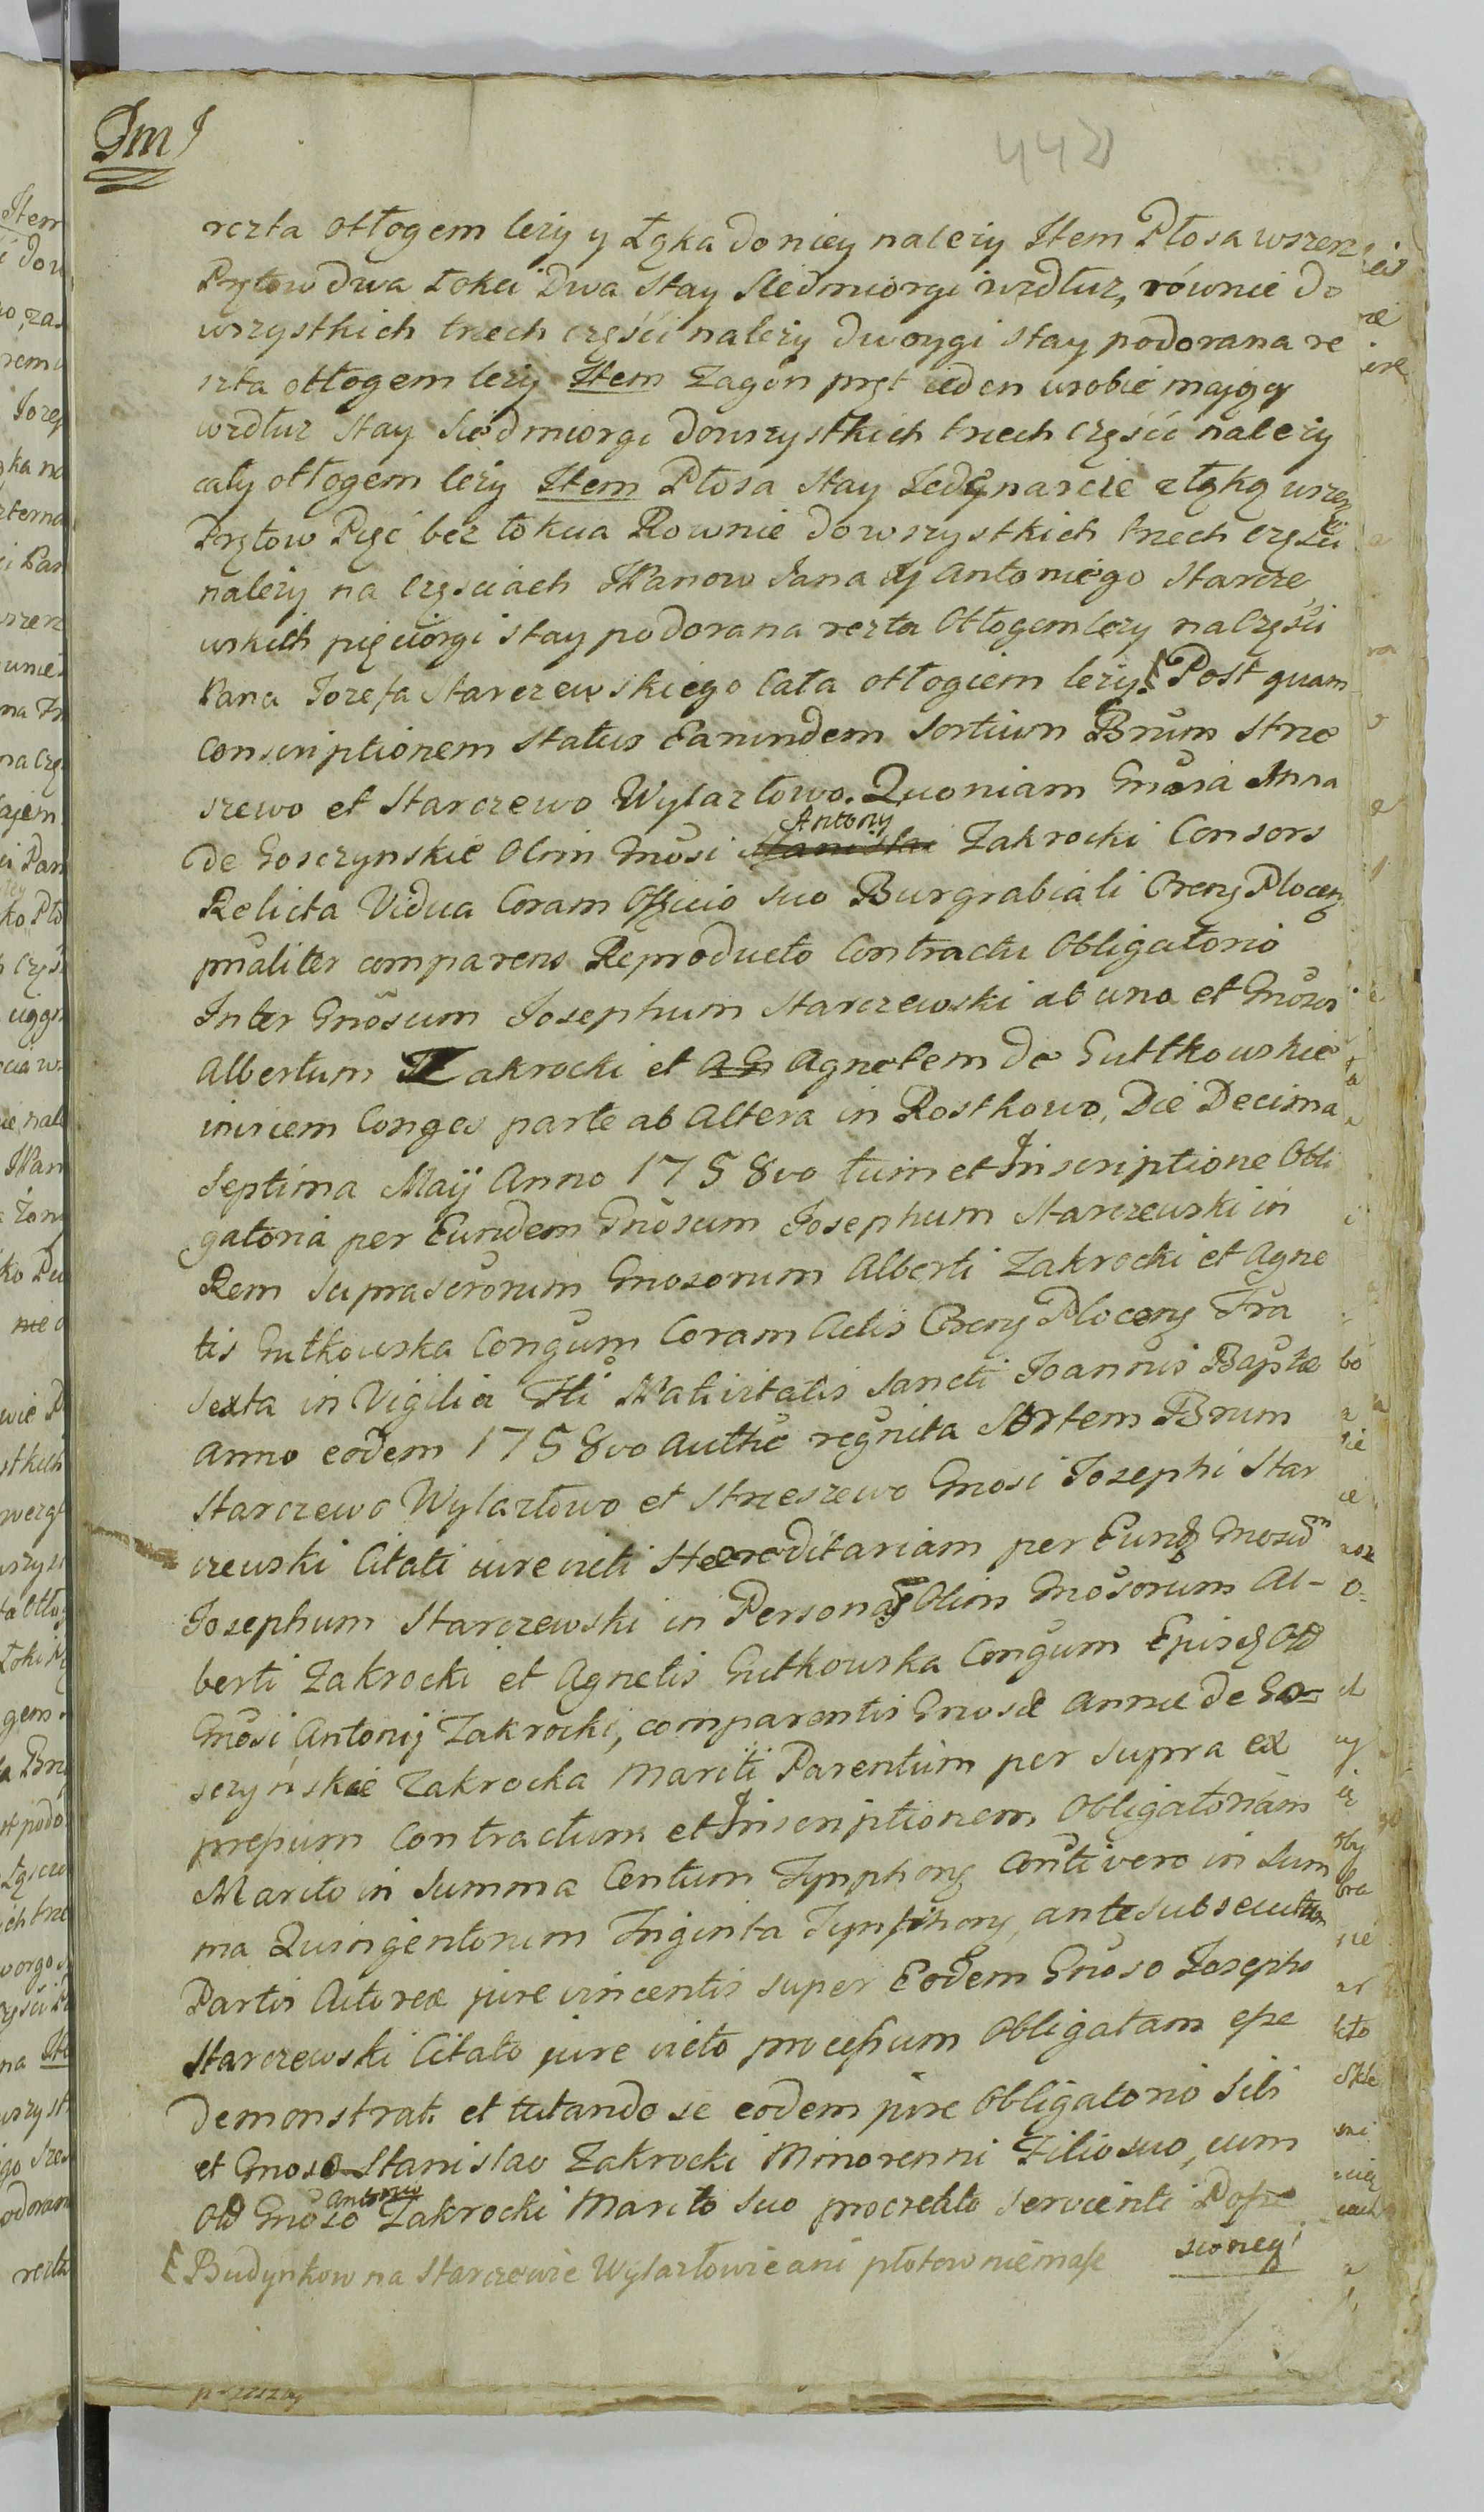 Im
442
rezta ołłogem lezy y Łąka do niey nalezy Item Płosa wszerz
Prętow dwa Łokci Dwa Stay Siedmiorgi wzdłuz, równie do
wszystkich trzech części nalezy dwoygi stay podorana re
szta ołłogem lezy Item Zagon pręt ieden wrobie maiący
wzdłuz Stay Siedmiorgi dowszystkich trzech części nalezy
cały ołłogem lezy Item Płosa Stay Jedęnarcie z łąką wszerz
Prętow Pięć bez łokcia Rownie dowszystkich trzech części
nalezy na częsciach JPanow Jana y Antoniego Starcze
wskich pięciorgi stay podorana rezta Ołłogem lezy na Części
Pana Jozefa Starczewskiego Cała ołłogiem lezy. Post quam
Conscriptionem Status Earundem Sortium Bnum Strze
szewo et Starczewo Wylazłowo. Quoniam Gnosa Anna
Antony
de Gosczynskie Olim Gnosi Stanislai Zakrocki Consors
Relicta Vidua Coram Officio suo Burgrabiali Creng Ploceng
pnaliter comparens Reproducto Contractu Obligatorio
Inter Gnosum Josephum Starczewski ab una et Gnosos
Albertum Zakrocki et AG Agnetem de Guttkowskie
invicem Conges parte ab Altera in Rostkowo, Die Decima
Septima Maij Anno 1758vo tum et Inscriptione Obli
gatoria per Eundem Gnosum Josephum Starczewski in
Rem suprascrorum Gnosorum Alberti Zakrocki et Agne
tis Gutkowska Congum Coram Actis Creng Ploceng Fra
Sexta in Vigilia Fti Nativitatis Sancti Joannis Baptae
Anno eodem 1758vo Authe regnita Sortem Bnum
Starczewo Wylazłowo et Strzeszewo Gnosi Josephi Star
czewski Citati iure victi Haereditariam per Eund Gnosum
Josephum Starczewski in Personas Olim Gnosorum Al-
berti Zakrocki et Agnetis Gutkowska Congum Episq Old
Gnosi Antonij Zakrocki, comparentis Gnosae Annae de Go-
sczyńskie Zakrocka Mariti Parentum per supra ex
pressum Contractum et Inscriptionem Obligatoriam
Marito in Summa Centum Tynphong Conti vero in Sum
ma Quingentorum Triginta Tynphong, ante subsecutum
Partis Actoreae jure vincentis super Eodem Gnoso Josepho
Starczewski Citato jure victo processum Obligatam esse
demonstrat. et tutando se eodem jure Obligatorio Sibi
et Gnoso Stanislao Zakrocki Minorenni Filio suo, cum
Antonio
Old Gnoso Zakrocki Marito suo procreato servienti Posse
sioneq
Budynkow na Starczewie Wylazłowie ani płotow niemasz